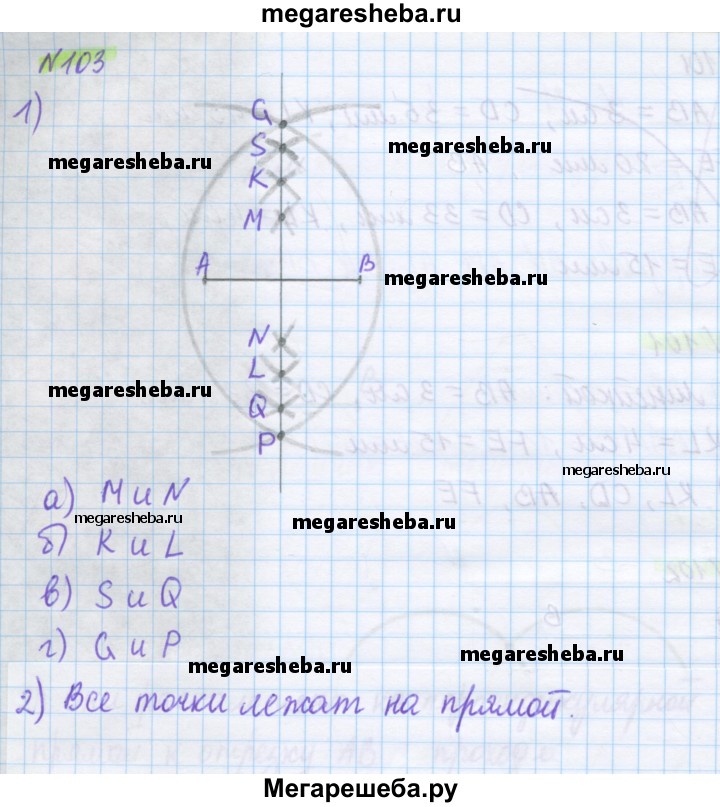 megaresheba.ru
N103
1)
G
S
megaresheba.ru
megaresheba.ru
K
M
A
B
megaresheba.ru
N
L
megaresheba.ru
Q
P
megaresheba.ru
а) M и N
megaresheba.ru
megaresheba.ru
б) K и L
в) S и Q
г) G и P
megaresheba.ru
megaresheba.ru
2) Все точки лежат на прямой.
Мегарешеба.ру